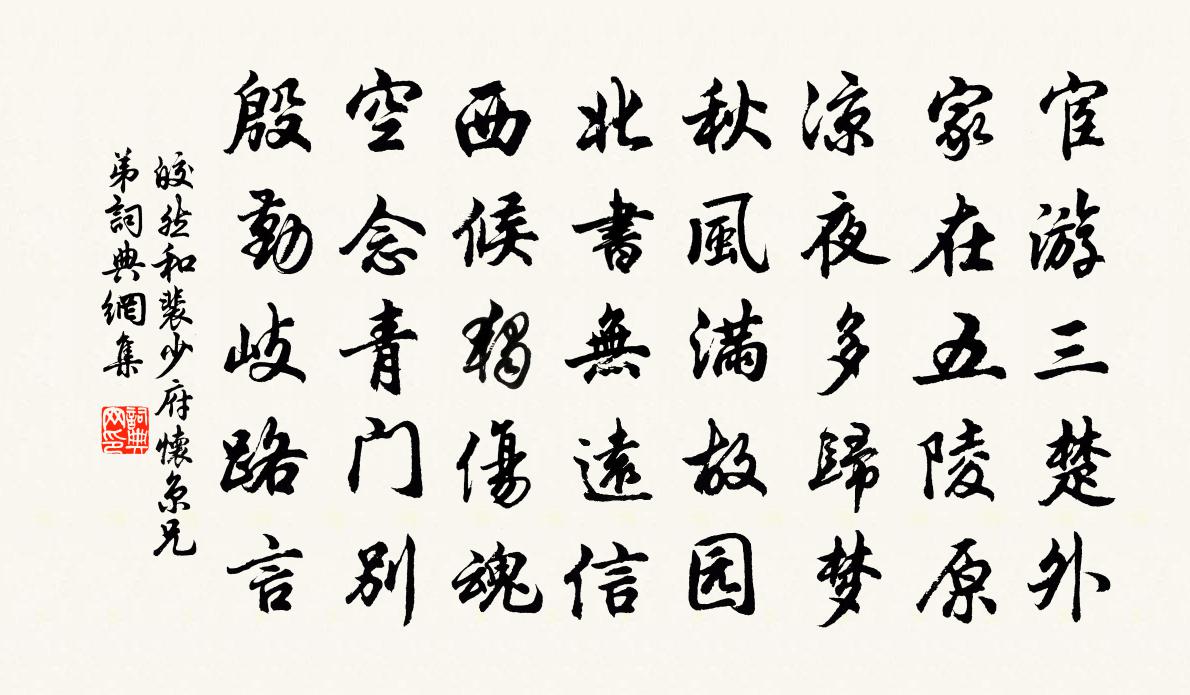 宦游三楚外
家在五陵原
凉夜多歸梦
秋風满故园
北書無遠信
西候獨傷魂
空念青门别
殷勤岐路言
皎然和裴少府懷京兄
弟詞典網集
詞典网印